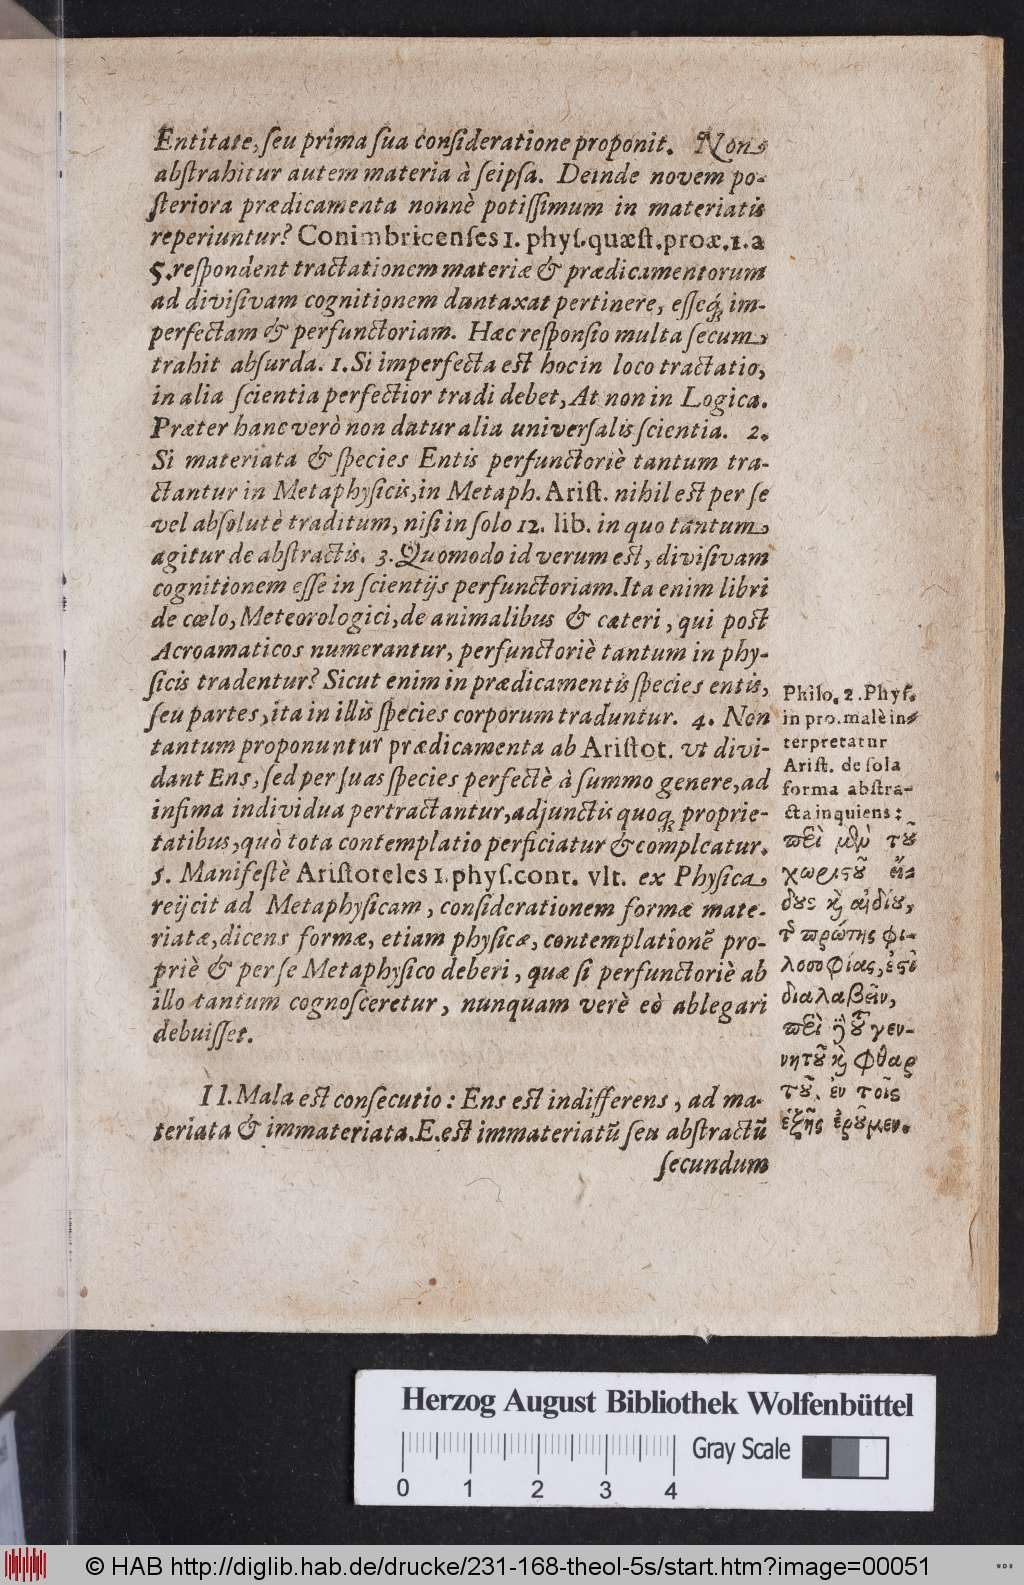 Entitate, ſeu prima ſua conſideratione proponit. Non
abſtrahitur autem materia à ſeipſa. Deinde novem po-
ſteriora prædicamenta nonnè potiſſimum in materiatis
reperiuntur? Conimbricenſes 1. phyſ.quæſt.proæ.1.a
5.reſpondent tractationem materiæ & prædicamentorum
ad diviſivam cognitionem duntaxat pertinere, eſſeq́; im-
perfectam & perfunctoriam. Hæc reſponſio multa ſecum
trahit abſurda. 1. Si imperfecta eſt hoc in loco tractatio,
in alia ſcientia perfectior tradi debet, At non in Logica.
Præter hanc verò non datur alia univerſalis ſcientia. 2.
Si materiata & ſpecies Entis perfunctoriè tantum tra-
ctantur in Metaphyſicis, in Metaph. Ariſt. nihil eſt per ſe
vel abſolutè traditum, niſi in ſolo 12. lib. in quo tantum
agitur de abſtractis. 3. Quomodo id verum eſt, diviſivam
cognitionem eſſe in ſcientijs perfunctoriam. Ita enim libri
de cœlo, Meteorologici, de animalibus & cæteri, qui poſt
Acroamaticos numerantur, perfunctoriè tantum in phy-
ſicis tradentur? Sicut enim in prædicamentis ſpecies entis,
ſeu partes, ita in illis ſpecies corporum traduntur. 4. Non
tantum proponuntur prædicamenta ab Ariſtot. vt divi-
dant Ens, ſed per ſuas ſpecies perfectè à ſummo genere, ad
infima individua pertractantur, adjunctis quoq; proprie-
tatibus, quò tota contemplatio perficiatur & compleatur.
5. Manifeſtè Ariſtoteles 1. phyſ.cont. vlt. ex Phyſica
reijcit ad Metaphyſicam, conſiderationem formæ mate-
riatæ, dicens formæ, etiam phyſicæ, contemplationẽ pro-
priè & per ſe Metaphyſico deberi, quæ ſi perfunctoriè ab
illo tantum cognoſceretur, nunquam verè eò ablegari
debuiſſet.
II. Mala eſt conſecutio: Ens eſt indifferens, ad ma-
teriata & immateriata. E. eſt immateriatũ ſeu abſtractũ
ſecundum
Philo. 2. Phyſ.
in pro. malè in-
terpretatur
Ariſt. de ſola
forma abſtra-
cta inquiens:
περὶ μὲν τοῦ
χωριστοῦ εἴ-
δους κὶ ἀϊδίου,
τ͂ πρώτης φι-
λοσοφίας, ἐστὶ
διαλαβεῖν,
περὶ ἢ τοῦ γεν-
νητοῦ κὶ φθαρ
τοῦ, ἐν τοῖς
ἑξῆς ἐροῦμεν.
Herzog August Bibliothek Wolfenbüttel
Gray Scale
0 1 2 3 4
© HAB http://diglib.hab.de/drucke/231-168-theol-5s/start.htm?image=00051